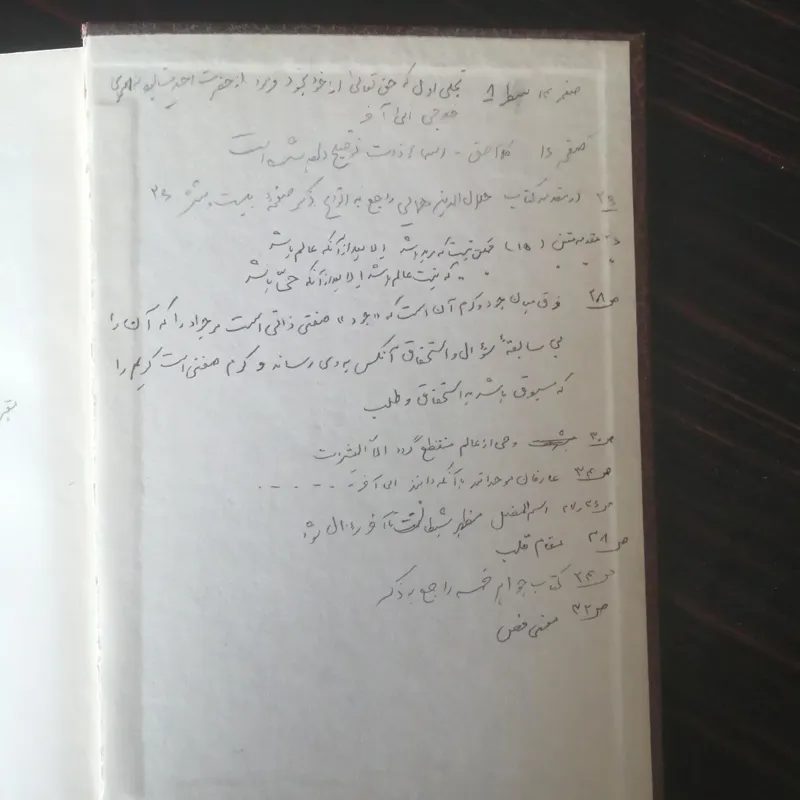 صفحه ۱۴ سطر ۹ تجلی اول که حق تعالی از خود بخود نمود از حضرت احدیت
الی آخر
صفحه ۱۶ توضیح داده شده است
در مقدمه کتاب جلال الدین همائی راجع به انواع ذکر صفحهٔ بیست و شش ۲۶
مقدمه متن (۱۵) ممکن نیست که مرید باشد الا بعد از آنکه عالم باشد
که نیست عالم باشد الا بعد از آنکه حیّ باشد
ص ۲۸ فرق میان جود و کرم آن است که «جود» صفتی ذاتی است مر جواد را که آن را
بی سابقهٔ سؤال و استحقاق آنکس به وی رساند و کرم صفتی است کریم را
که مسبوق باشد به استحقاق و طلب
ص ۳۰ وحی از عالم منقطع گردد الا المبشرات
ص ۳۴ عارفان موحدانند بآنکه دانند الی آخر ......
ص ۲۶ و ۲۷ اسم المضل مظهر شیطانست تا آخر سؤال شود
ص ۲۸ مقام قلب
ص ۳۴ کتاب جواهر خمسه راجع به ذکر
ص ۳۲ معنی فص